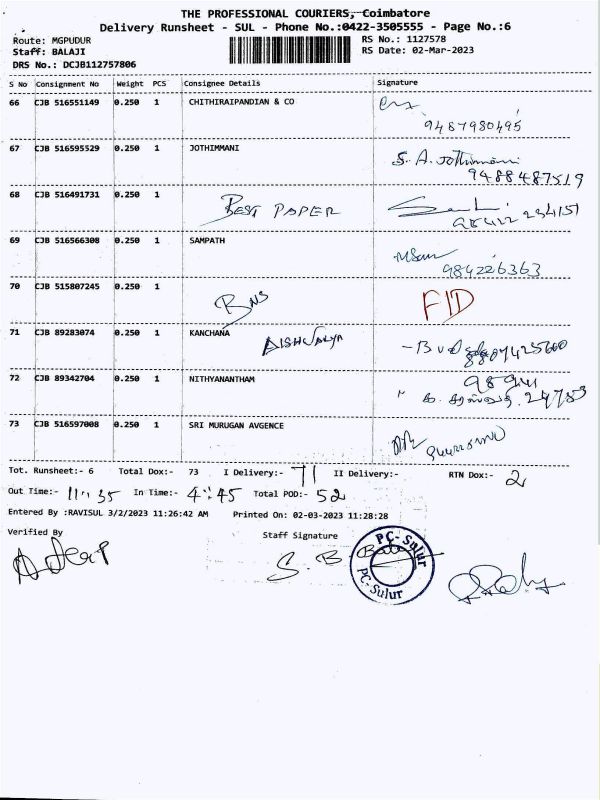 THE PROFESSIONAL COURIERS, Coimbatore
Delivery Runsheet - SUL - Phone No.:0422-3505555 - Page No.:6
Route: MGPUDUR
RS No.: 1127578
Staff: BALAJI
RS Date: 02-Mar-2023
DRS No.: DCJB112757806
S No Consignment No Weight PCS Consignee Details Signature
66 CJB 516551149 0.250 1 CHITHIRAIPANDIAN & CO
9487980495
67 CJB 516595529 0.250 1 JOTHIMMANI S. A. Jothimmani
9488487519
68 CJB 516491731 0.250 1
BEST PAPER
69 CJB 516566308 0.250 1 SAMPATH
984226363
70 CJB 515807245 0.250 1
BNS FID
71 CJB 89283074 0.250 1 KANCHANA
AISHWARYA
72 CJB 89342704 0.250 1 NITHYANANTHAM
73 CJB 516597008 0.250 1 SRI MURUGAN AVGENCE
Tot. Runsheet:- 6 Total Dox:- 73 I Delivery:- 71 II Delivery:- RTN Dox:- 2
Out Time:- 11:35 In Time:- 4:45 Total POD:- 52
Entered By :RAVISUL 3/2/2023 11:26:42 AM Printed On: 02-03-2023 11:28:28
Verified By Staff Signature
S. B
PC-Sulur
PC-Sulur